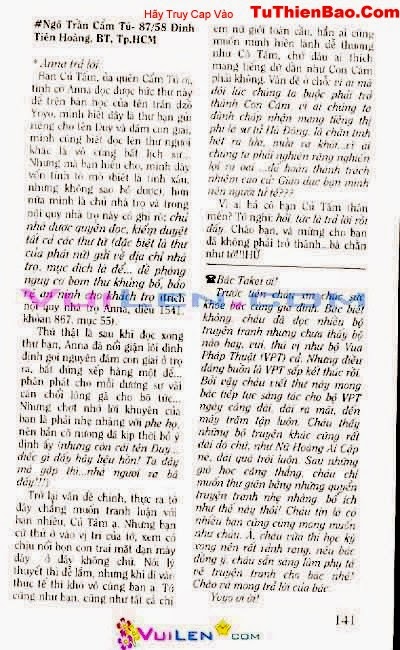 Hãy Truy Cap Vào
TuThienBao.Com
#Ngô Trần Cẩm Tú- 87/58 Đinh
Tiên Hoàng, BT, Tp.HCM
* Anna trả lời:
Bạn Cú Tắm, ủa quên Cẩm Tú ơi,
tình cờ Anna đọc được bức thư này
để trên bàn học của tên trấn dzô
Yoyo, mình biết đây là thư bạn gửi
riêng cho tên Duy và đám con giai,
mình cũng biết đọc lén thư người
khác là vô cùng bất lịch sự...
Nhưng mà bạn hiểu cho, mình đây
vốn tính tò mò
nhưng không sao bỏ được), hơn
nữa mình là chủ nhà trọ và trong
nội quy nhà trọ này có ghi rõ: chủ
nhà được quyền đọc, kiểm duyệt
tất cả các thư từ (đặc biệt là thư
của phái nữ) gửi về địa chỉ nhà
trọ, mục đích là để... đề phòng
nguy cơ bom thư khủng bố, bảo
vệ an ninh cho khách trọ (trích
nội quy nhà trọ Anna, điều 1541,
khoản 867, mục 55).
Thú thật là sau khi đọc xong
thư bạn, Anna đã nổi giận lôi đình
định gọi nguyên đám con giai ở trọ
ra, bắt đứng xếp hàng một để...
phân phát cho mỗi đương sự vài
cán chổi lông gà cho bõ tức...
Nhưng chợt nhớ lời khuyên của
bạn là phải nhẹ nhàng với phe họ,
nên bản cô nương đã kịp thời bỏ ý
định ấy (nhưng còn cái tên Duy...
điếc gì đấy hãy liệu hồn! Ta đây
mà gặp thì... nhà ngươi ra bã
đấy!!!)
Trở lại vấn đề chính, thực ra tớ
đây chẳng muốn tranh luận với
bạn nhiều, Cú Tắm ạ. Nhưng bạn
cứ thử ở vào vị trí của tớ, xem có
chịu nổi bọn con trai mất dạy mày
dày ở đây không chứ. Nói lý
thuyết thì dễ lắm, nhưng khi đi vào
thực tế thì khó vô cùng bạn ạ. Tớ
cũng như bạn, cũng như tất cả chị
em nữ giới toàn cầu, hẳn ai cũng
muốn mình hiền lành dễ thương
như Cô Tấm, chớ đâu ai thích
mang tiếng dữ dằn như Con Cám
phải không. Vấn đề ở chỗ: vì ai mà
đôi lúc chúng ta buộc phải trở
thành Con Cám, vì ai chúng ta
đành chấp nhận mang tiếng thị
phi là sư tử Hà Đông, là chằn tinh
hét ra lửa, mửa ra khói...vì ai
chúng ta phải nghiến răng nghiến
lợi ra oai ...để hoàn thành trách
nhiệm cao cả: Giáo dục bọn mình
nên người tử tế???
Vì ai hả cô bạn Cú Tắm thân
mến? Tớ nghĩ: hỏi tức là trả lời rồi
đấy. Chào bạn, và mừng cho bạn
đã không phải trở thành...bà chằn
như tớ!!!HỪ
☎Bác Takei ơi!
Trước tiên cháu xin chúc sức
khỏe bác cùng gia đình. Bác biết
không cháu đã đọc nhiều bộ
truyện tranh nhưng chưa thấy bộ
nào hay, vui, thú vị như bộ Vua
Pháp Thuật (VPT) cả. Nhưng điều
đáng buồn là VPT sắp kết thúc rồi.
Bởi vậy cháu viết thư này mong
bác tiếp tục sáng tác cho bộ VPT
ngày càng dài, dài ra mãi, đến
mấy trăm tập luôn. Cháu thấy
những bộ truyện khác cũng rất
dài đó chứ, như Nữ Hoàng Ai Cập
nè, dài quá trời luôn. Sau những
giờ học căng thẳng, cháu chỉ
muốn thư giãn bằng những quyển
truyện tranh nhẹ nhàng, bổ ích
như thế này thôi! Cháu tin là có
nhiều bạn cũng cùng mong muốn
như cháu. À, cháu vừa thi học kỳ
xong nên rất rảnh rang, nếu bác
đồng ý, cháu sẵn sàng làm phụ tá
vẽ truyện tranh cho bác nhé!
Chào và mong trả lời của bác
Yoyo ơi ời!
VuiLen.com
141
VuiLen.com